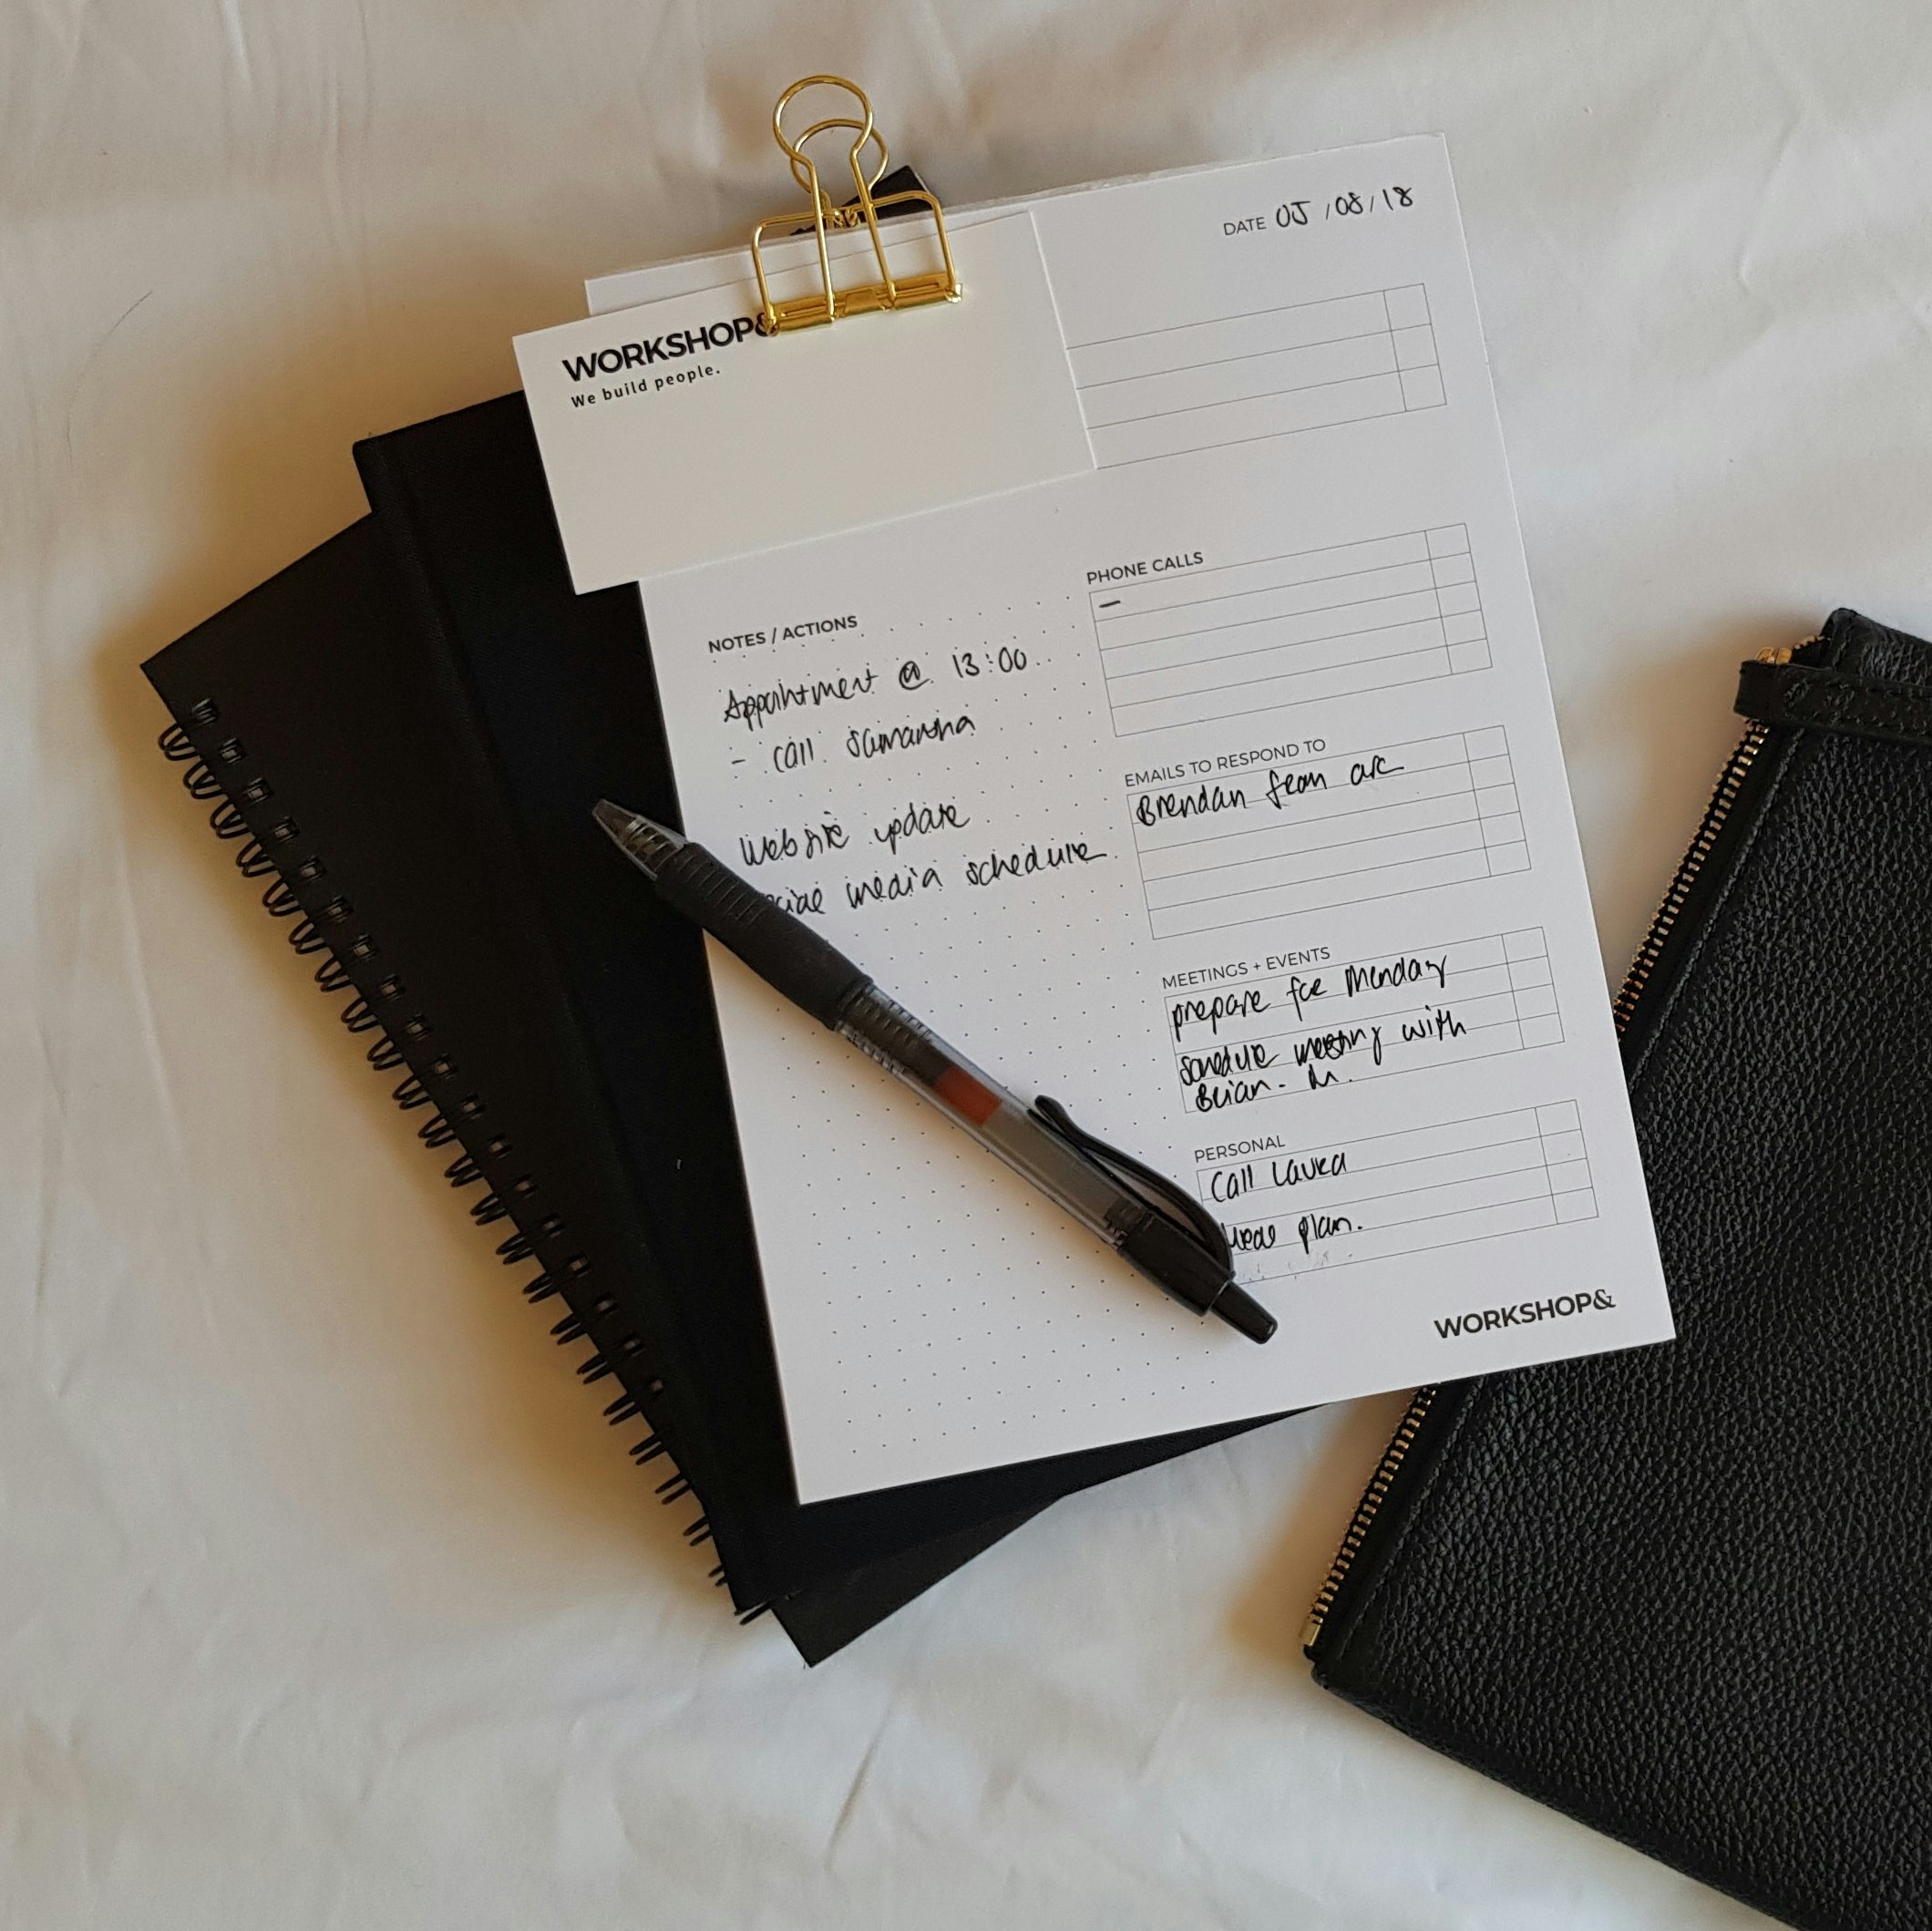 DATE 05/08/18
WORKSHOP&
We build people.
NOTES / ACTIONS
Appointment @ 13:00
- call Samantha
Website update
media schedule
PHONE CALLS
-
EMAILS TO RESPOND TO
Brendan from arc
MEETINGS + EVENTS
prepare for Monday
schedule meeting with
Brian. M.
PERSONAL
Call Laura
Meal plan.
WORKSHOP&